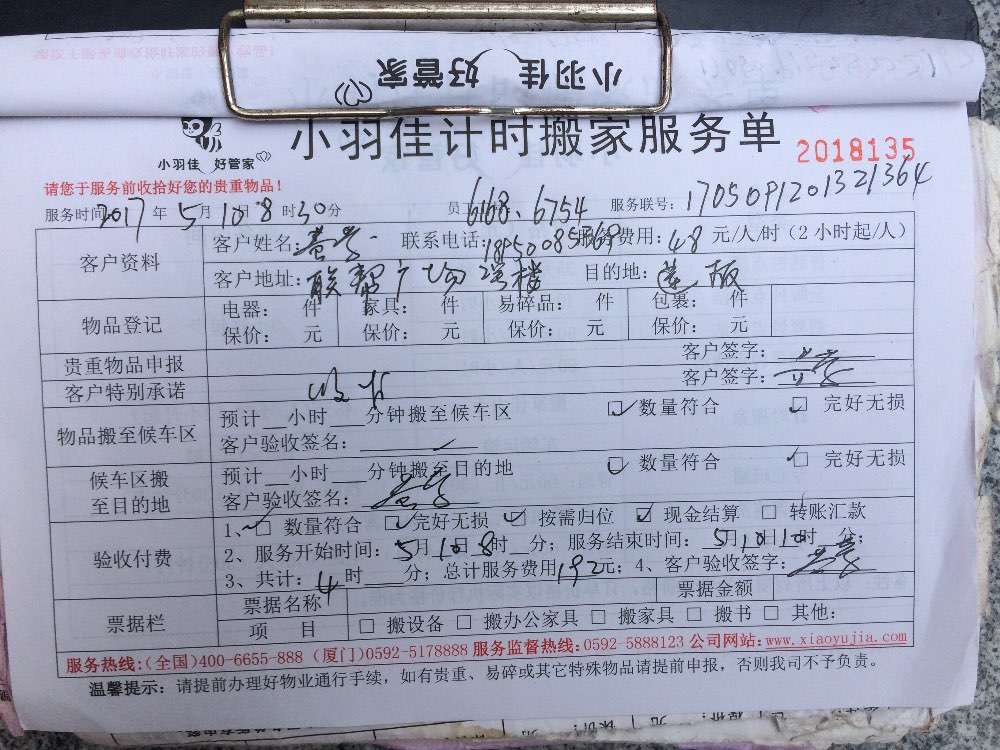 小羽佳 好管家
小羽佳 好管家
小羽佳计时搬家服务单
2018135
请您于服务前收拾好您的贵重物品!
服务时间 2017 年 5 月 10 日 8 时 30 分 员工 6168、6754 服务联号: 1705091201321364
客户资料
客户姓名: 联系电话: 服务费用: 48 元/人/时(2小时起/人)
客户地址: 目的地: 莲坂
物品登记
电器: 件 家具: 件 易碎品: 件 包裹: 件
保价: 元 保价: 元 保价: 元 保价: 元
贵重物品申报 客户签字:
客户特别承诺 客户签字:
物品搬至候车区
预计__小时___分钟搬至候车区 ☑数量符合 ☑ 完好无损
客户验收签名:
候车区搬至目的地
预计__小时___分钟搬至目的地 ☑数量符合 ☑ 完好无损
客户验收签名:
验收付费
1、☑ 数量符合 ☑完好无损 ☑ 按需归位 ☑ 现金结算 □ 转账汇款
2、服务开始时间: 5月10日8时__分; 服务结束时间: 5月10日10时__分;
3、共计: 4时___分; 总计服务费用192元; 4、客户验收签字:
票据栏
票据名称 票据金额
项 目 □ 搬设备 □ 搬办公家具 □ 搬家具 □ 搬书 □ 其他:
服务热线:(全国)400-6655-888 (厦门)0592-5178888 服务监督热线:0592-5888123 公司网站: www.xiaoyujia.com
温馨提示: 请提前办理好物业通行手续,如有贵重、易碎或其它特殊物品请提前申报,否则我司不予负责。